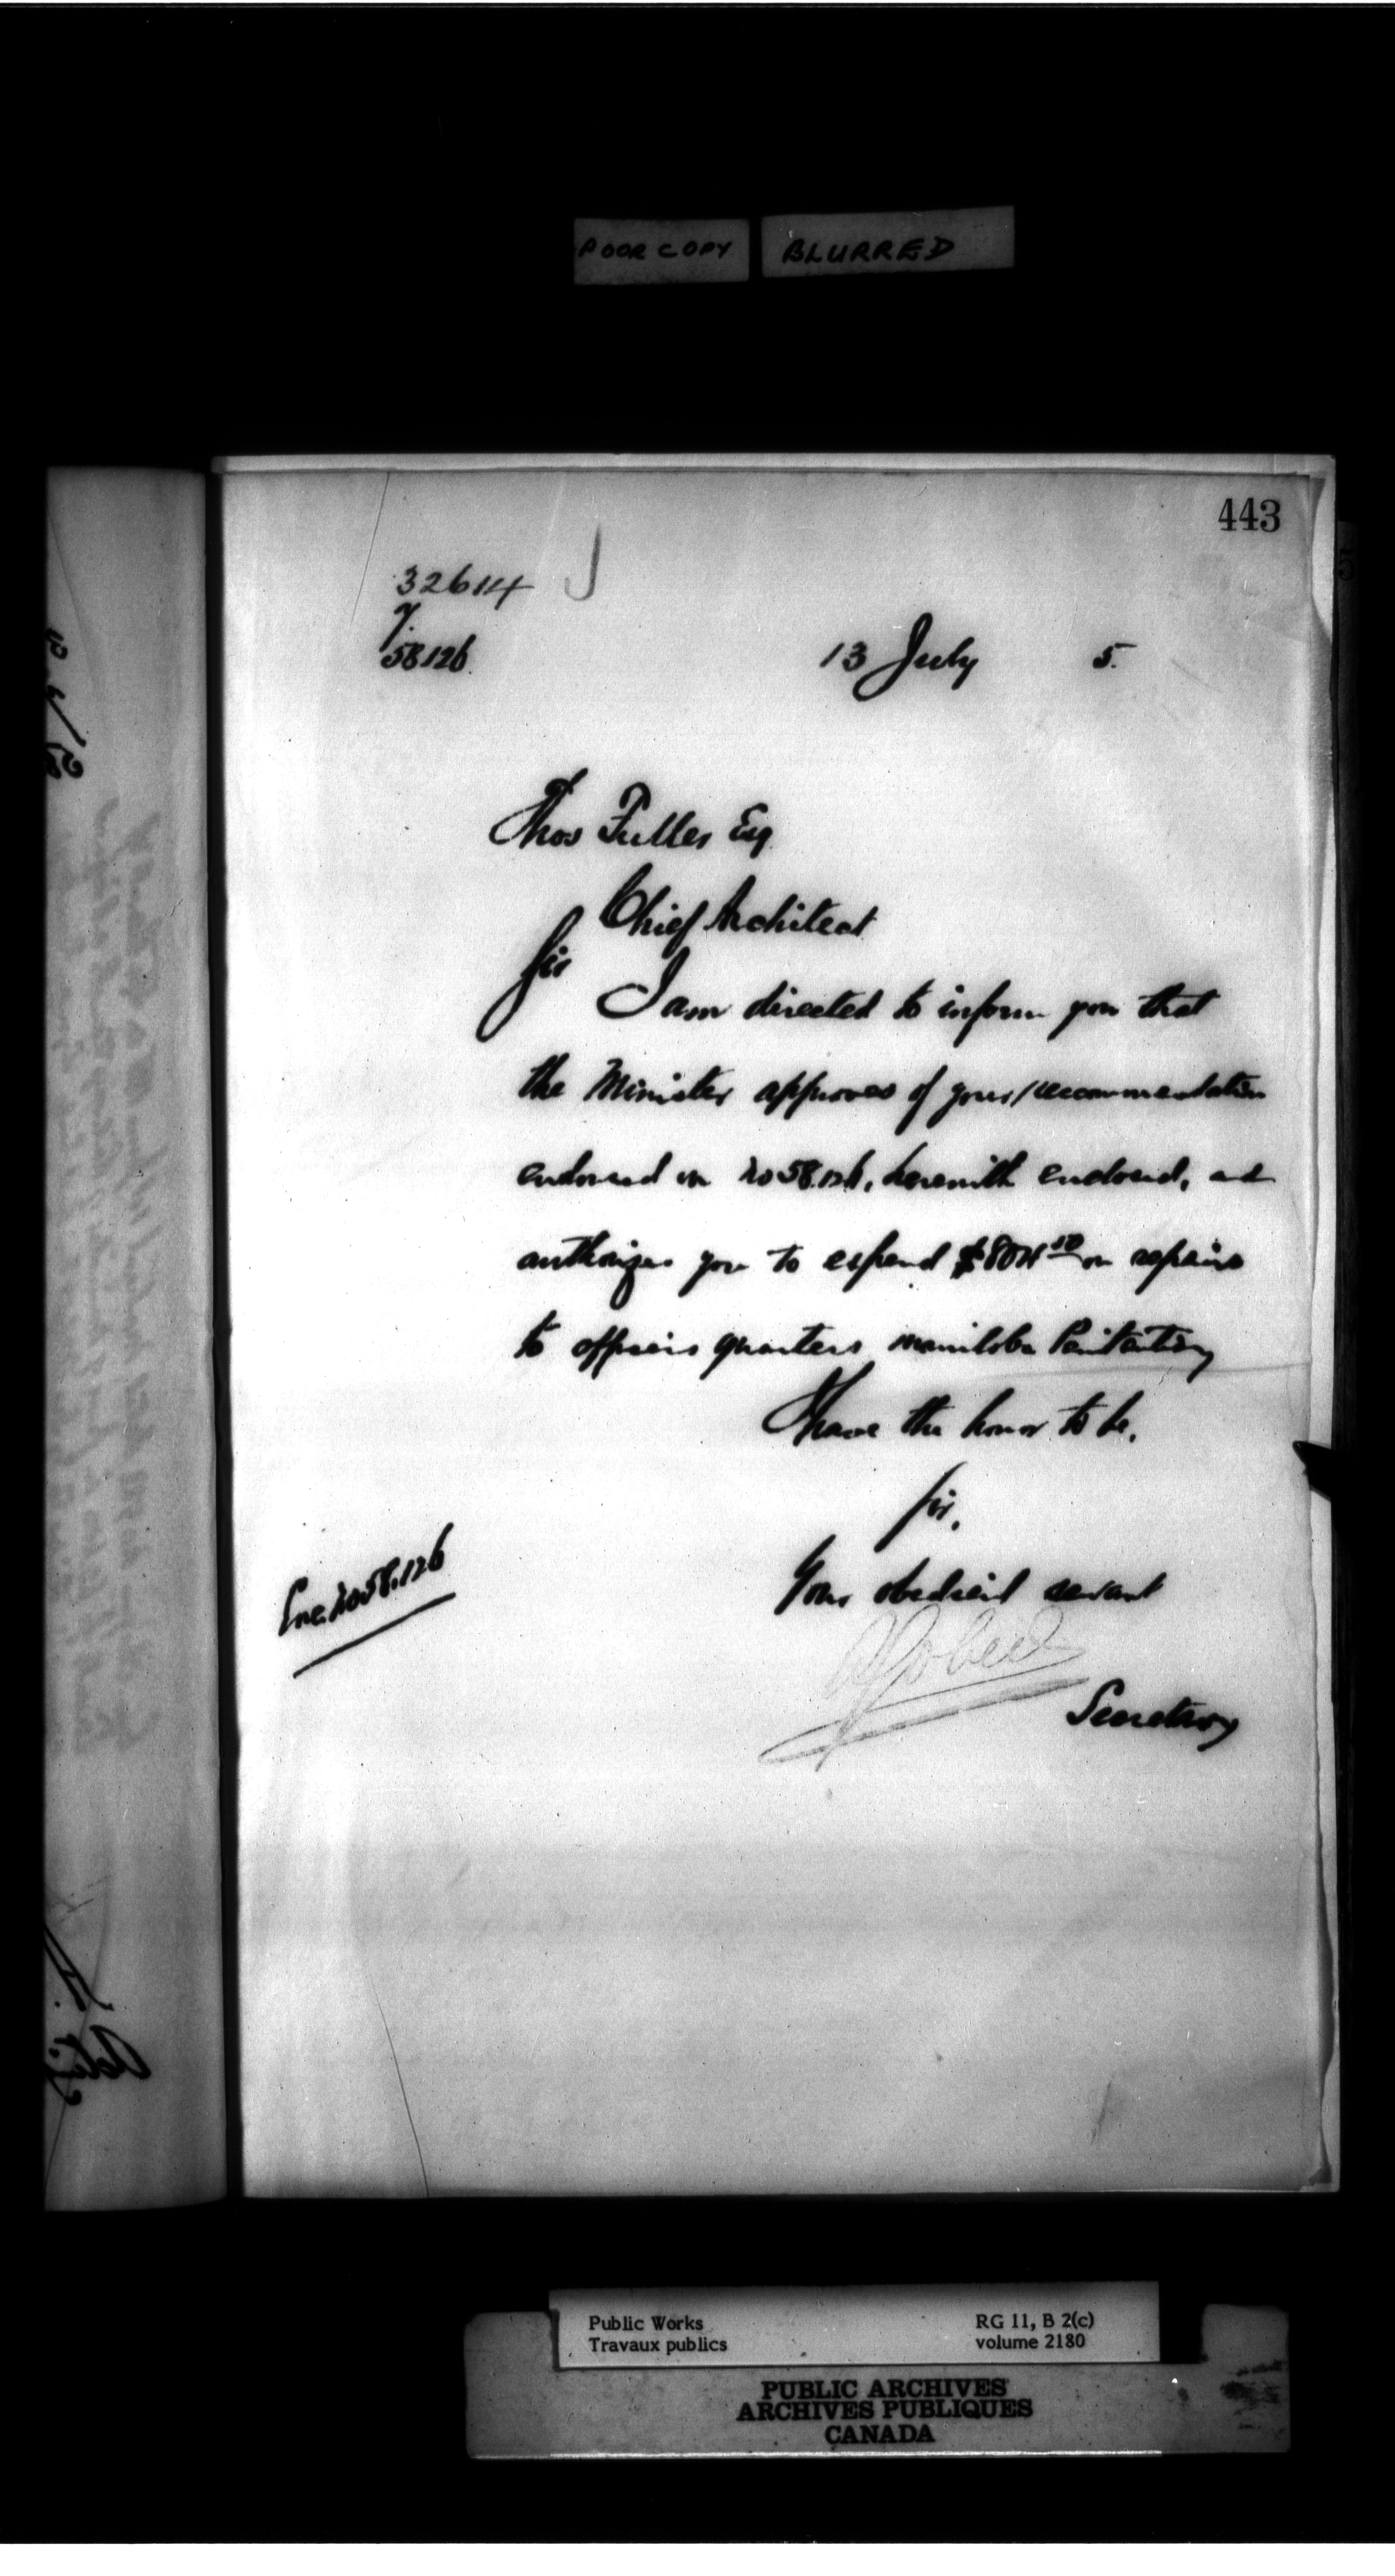 POOR COPY BLURRED
443
32614
58126
13 July 5.
Thos Fuller Esq
Chief Architect
Sir
I am directed to inform you that
the Minister approves of your recommendation
endorsed on No 58.126, herewith enclosed, and
authorizes you to expend $804 50 on repairs
to officers quarters Manitoba Penitentiary
I have the honor to be,
Sir,
Your obedient servant
Enc. No 58.126
Secretary
Public Works RG 11, B 2(c)
Travaux publics volume 2180
PUBLIC ARCHIVES
ARCHIVES PUBLIQUES
CANADA